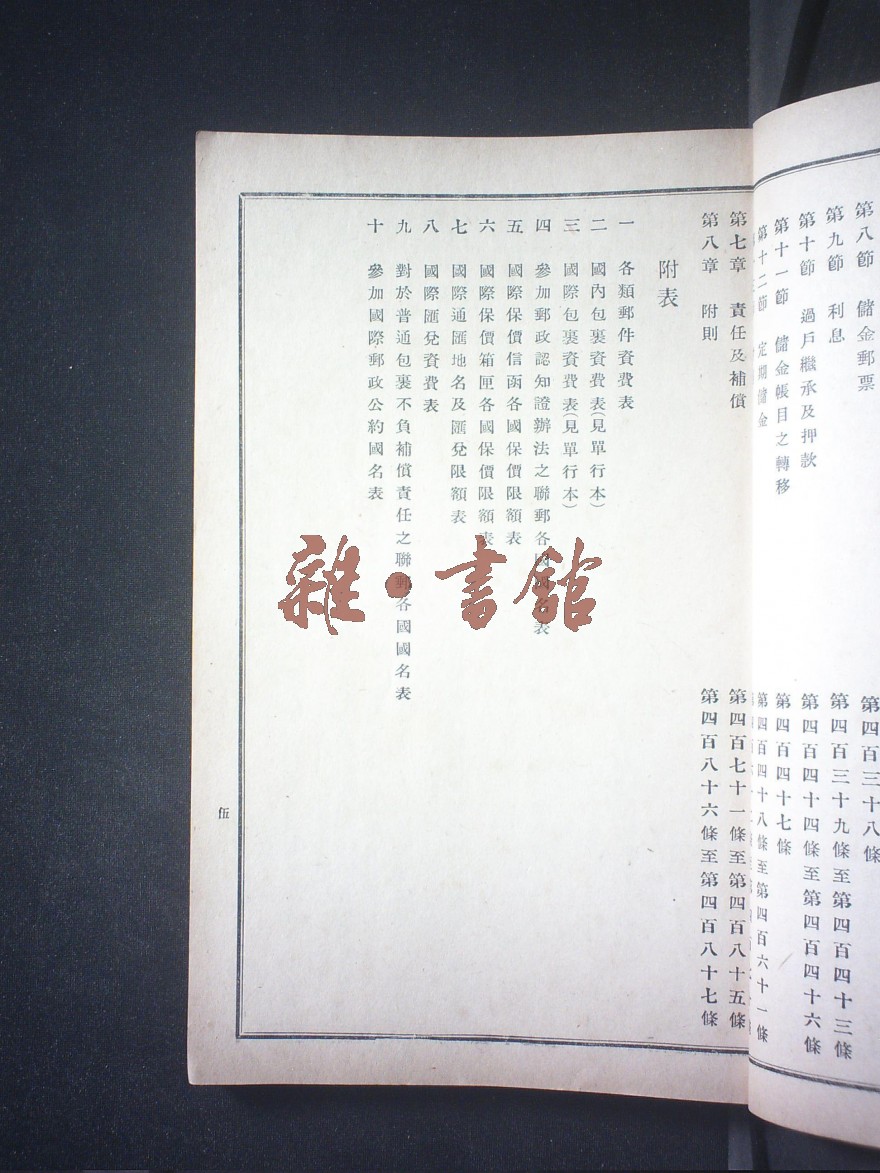 第八節 儲金郵票 第四百三十八條
第九節 利息 第四百三十九條至第四百四十三條
第十節 過戶繼承及押款 第四百四十四條至第四百四十六條
第十一節 儲金帳目之轉移 第四百四十七條
第十二節 定期儲金 第四百四十八條至第四百六十一條
第七章 責任及補償 第四百七十一條至第四百八十五條
第八章 附則 第四百八十六條至第四百八十七條
附表
一 各類郵件資費表
二 國內包裹資費表(見單行本)
三 國際包裹資費表(見單行本)
四 參加郵政認知證辦法之聯郵各國國名表
五 國際保價信函各國保價限額表
六 國際保價箱匣各國保價限額表
七 國際通匯地名及匯兌限額表
八 國際匯兌資費表
九 對於普通包裹不負補償責任之聯郵各國國名表
十 參加國際郵政公約國名表
伍
雜·書館